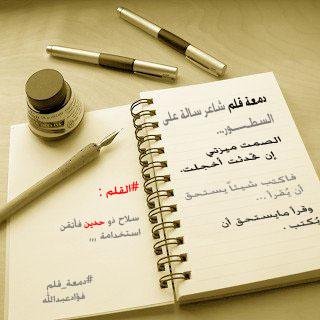 دمعة قلم شاعر سالة على
السطــور...
الصمت ميزتي
إن تحدثت أخجلت.
فاكتب شيئاً يستحق
أن يُقرأ...
وقرأ مايستحق أن
يُكتب.
#القلم :
سلاح ذو حدين فأتقن
استخدامة ,,,
#دمعة_قلم
فؤادعبدالله